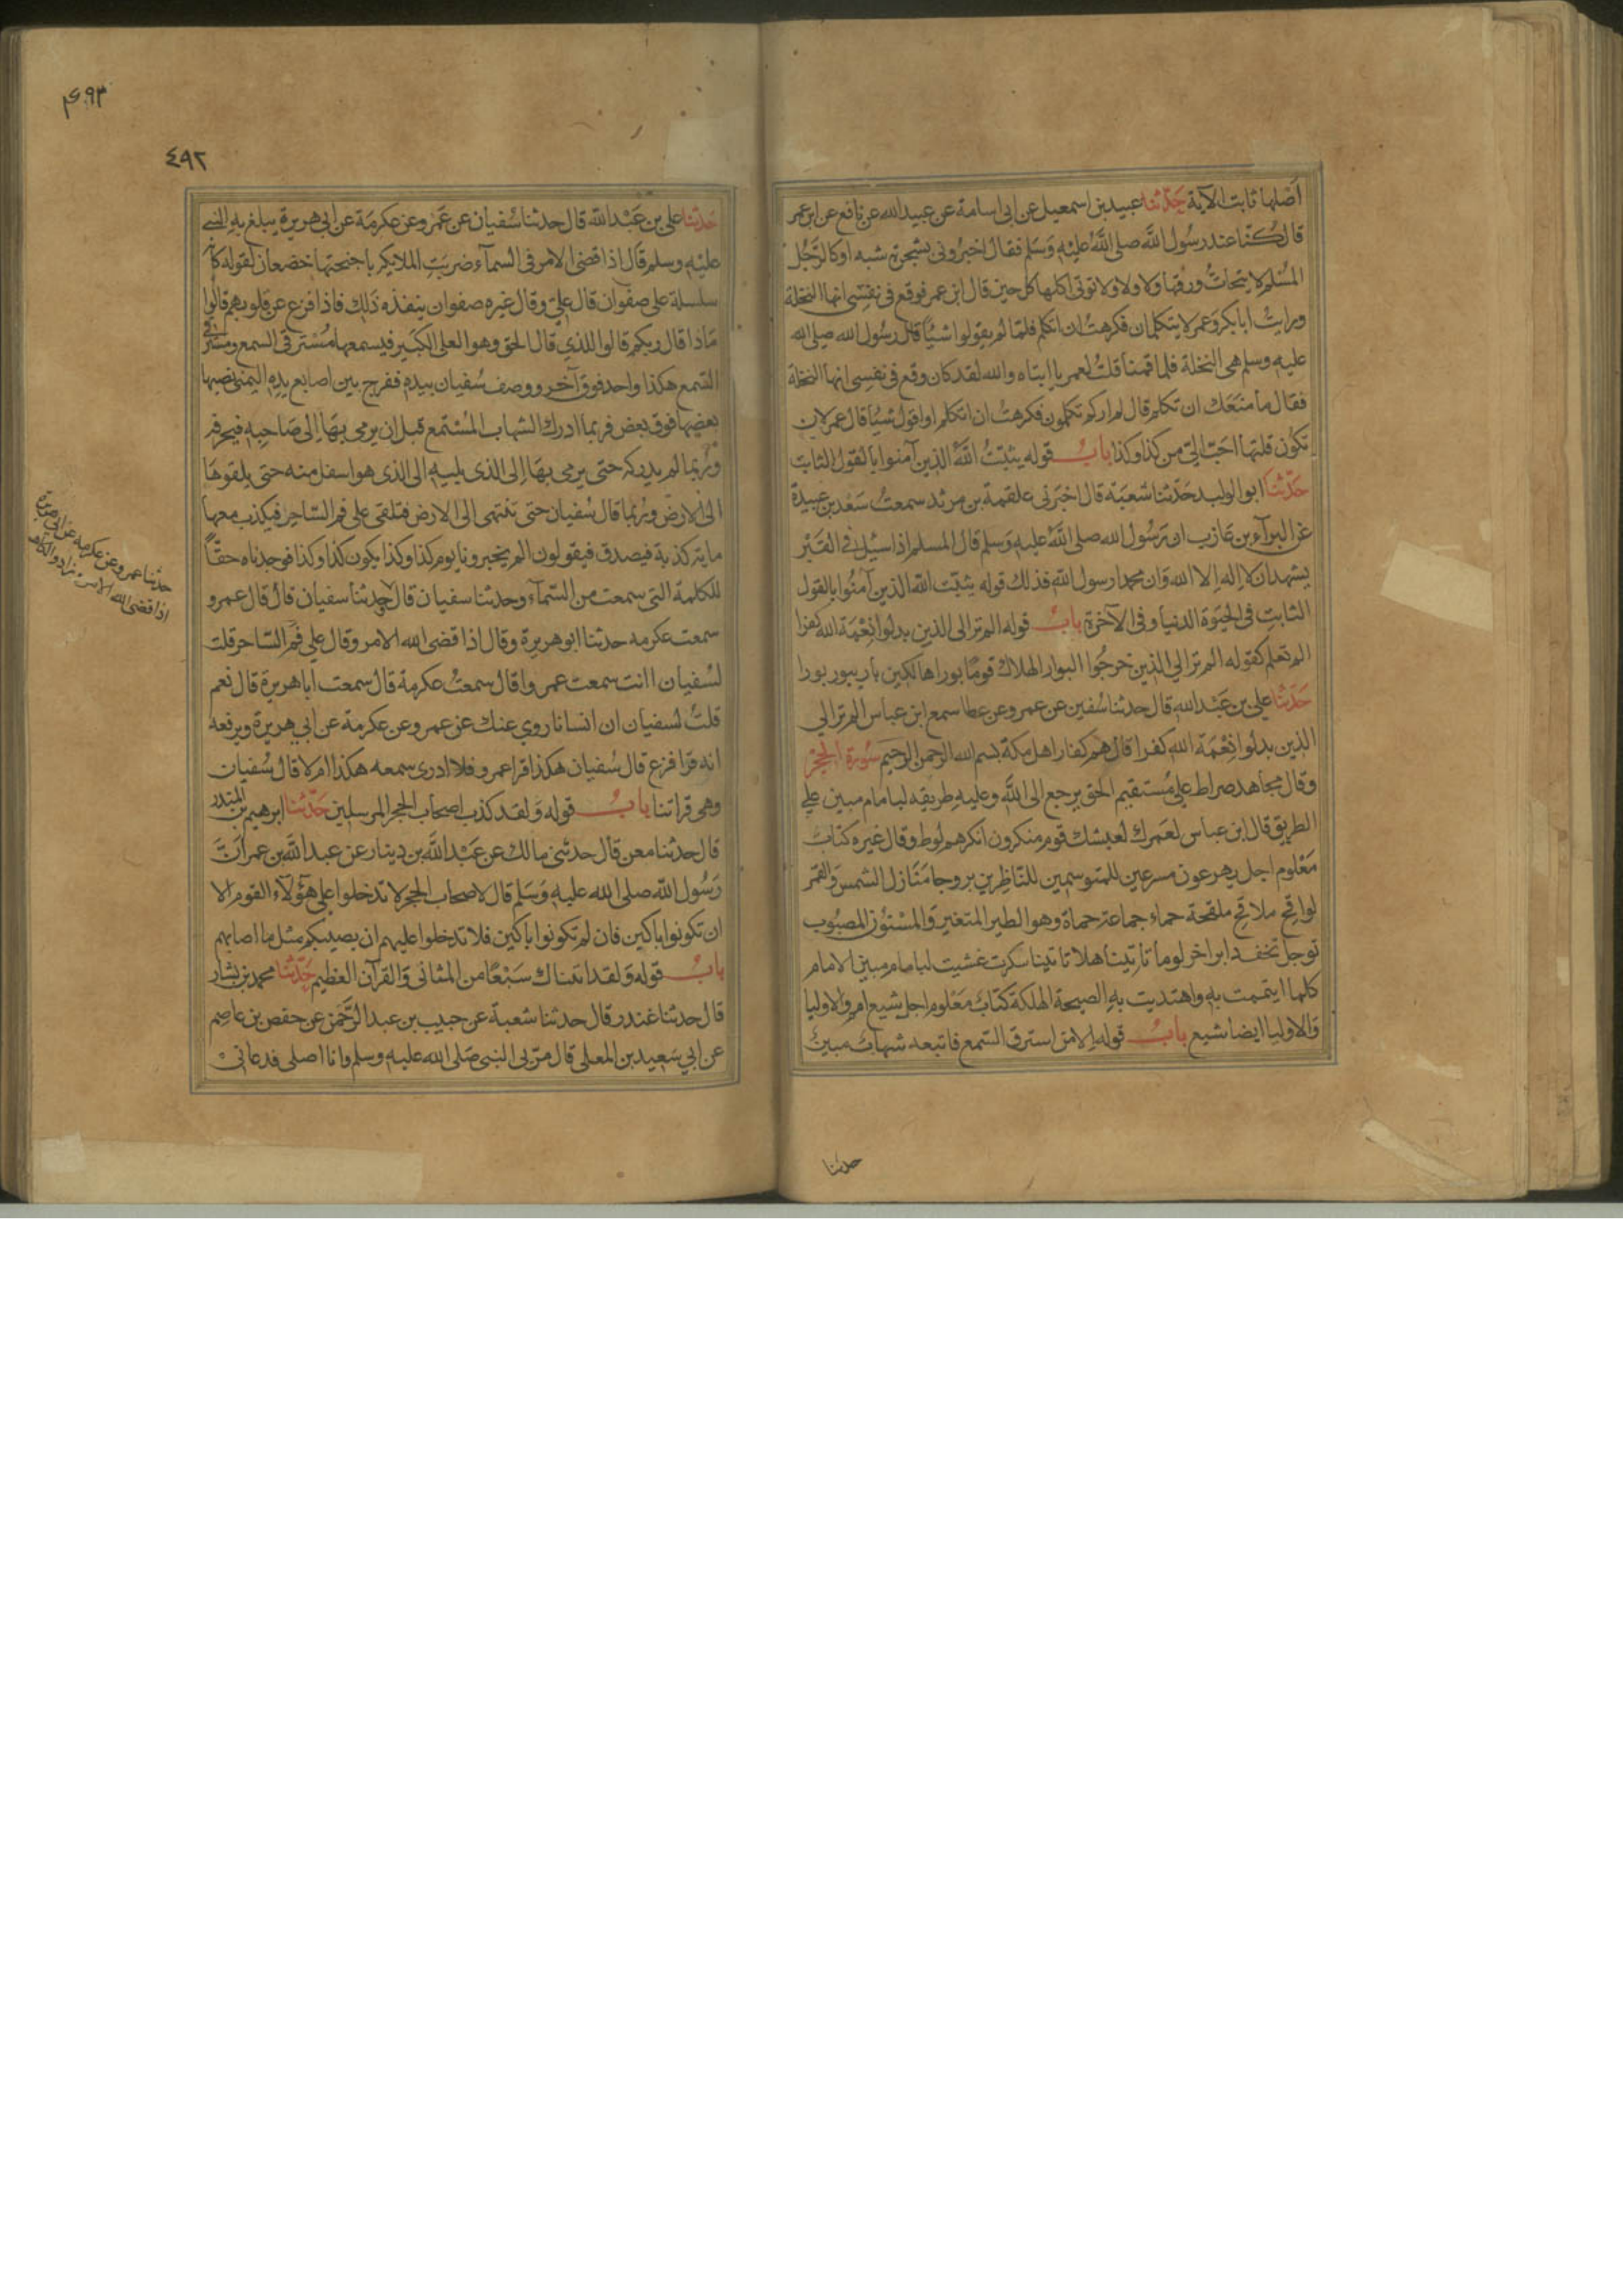 اَصْلها ثابت الآية حَدّثنا عبيد بن اسمعيل عن ابى اسامة عن عبيد الله عن نافع عن ابن عمر
قال كنّا عند رسُول اللَّه صلى اللَّهُ عليْهِ وَسَلم فقال اخبرُونى بشجرة شبه او كالرَّجُل
المُسْلم لا يتحاتُّ ورقها ولا ولا ولا تؤتى اكلها كل حين قال ابن عمر فوقع فى نفسى انها النخلة
ورايتُ ابابكر وَعمر لا يتكلمان فكرهتُ ان اتكلم فلمّا لم يقولوا شيئًا قال رسُول الله صلى الله
عليه وسلم هى النخلة فلما قمنا قلتُ لعمر يا ابتاه والله لقد كان وقع فى نفسى انها النخلة
فقال ما منعَك ان تكلم قال لم اركم تكلمون فكرهتُ ان اتكلم او اقول شيئًا قال عمر لان
تكون قلتها احَبّ الىّ من كذا وكذا بابُ قوله يثبّتُ اللَّهُ الذين آمنوا بالقول الثابت
حَدّثنا ابو الوليد حَدّثنا شعبَة قال اخبَرنى علقمة بن مرثد سمعتُ سَعْد بن عبيدة
عن البرآء بن عازب ان رَسُول الله صلى اللَّهُ عليهِ وَسلم قال المسلم اذا سئيل فى القَبْر
يشهد ان لا اله الا الله وَان محمدا رسول اللَّه فذلك قوله يثبّت اللَّه الذين آمنُوا بالقول
الثابتِ فى الحيوة الدنيا وفى الآخرة بابُ قوله الم تر الى الذين بدلوا نِعْمَة الله كفرا
الم تعلم كقوله الم تر الى الذين خرجُوا البوار الهلاك قومًا بورا هالكين بار يبور بورا
حَدّثنا على بن عَبْد الله قال حدثنا سُفين عن عمرو عن عطا سمع ابن عباس الم تر الى
الذين بدلوا نِعْمَة اللَّه كفرا قال هم كفار اهل مكة بسم الله الرحمن الرحيم سُورة الحِجْرْ
وقال مجاهد صراط علىّ مُستقيم الحق يرجع الى اللَّه وعليهِ طريقه لبامام مبين على
الطريق قال ابن عباس لعَمرك لعيشك قوم منكرون انكرهم لوط وقال غيره كتابٌ
مَعْلوم اجل يهرعون مسرعين للمتوسمين للنّاظرين بروجا مَنازل الشمس وَالقمر
لواقح ملاقح ملقحة حماء جماعة حماة وهو الطير المتغير وَالمسْنُون المصبُوب
توجل تخف دابر اخر لوما تاتيّنا هلا تاتينا سكرت غشيت لبامام مبين الامام
كلما ايتممت به واهتديت بهِ الصيحة الهلكة كتابٌ مَعْلوم اجل شيع امم والاوليا
وَالاوليا ايضا شيع بابُ قوله الا من استرق السَّمع فاتبعه شهابٌ مبينٌ
حدثنا
٤٠٩٣
٤٩٢
حَدّثنا على بن عَبْد اللَّه قال حدثنا سُفيان عن عَمرو عن عكرمَة عن ابى هريرة يبلغ بهِ النبى
عليْهِ وسلم قال اذا قضى الامر فى السمآء ضربَتِ الملايكة باجنحتها خضعان لقوله كانه
سلسلة على صفوان قال علىّ وقال غيره صفوان ينفذه ذلك فاذا فزع عن قلوبهم قالُوا
مَاذا قال ربكم قالوا للذى قال الحق وهو العلى الكبَير فيسمعها مُسْترقى السمع ومسترقو
السَّمع هكذا واحد فوق آخر ووصف سُفيان بيده ففرج بين اصابع يدهِ اليمنى نصبها
بعضِها فوق بعض فربما ادرك الشهاب المُسْتمع قبل ان يرمى بهَا الى صَاحِبهِ فيحرقه
ورُبما لم يدركه حتى يرمى بهَا الى الذى يليه الى الذى هو اسفل منه حتى يلقوهَا
الى الارض ورُبما قال سُفيان حتى تنتهى الى الارض فتلقى على فم السّاحر فيكذب معها
ماية كذبة فيصدق فيقولون الم يخبرونا يوم كذا وكذا يكون كذا وكذا فوجدناه حقًّا
للكلمة التى سمعت من السّمآء وحدثنا سفيان قال حدثنا سفيان قال قال عمرو
سمعت عكرمه حدثنا ابو هريرة وقال اذا قضى الله الامر وقال على فم السّاحر قلت
لسُفيان اانت سمعت عمروا قال سمعتُ عكرمة قال سمعت اباهريرة قال نعم
قلتُ لسفيان ان انسانا روى عنك عن عمرو عن عكرمة عن ابى هريرة ويرفعه
انه قرا فزع قال سُفيان هكذا قرا عمرو فلا ادرى سمعه هكذا ام لا قال سُفيان
وهى قراتنا بابُ قوله وَلقد كذب اصحاب الحجر المرسلين حَدّثنا ابرهيم بن المنذر
قال حدثنا معن قال حدثنى مالك عن عَبْد اللَّه بن دِينار عن عبد اللَّه بن عمر اَنّ
رَسُول اللَّه صلى الله عليهِ وَسَلم قال لاصحاب الحجر لا تدخلوا على هَؤلآء القوم الا
ان تكونوا باكين فان لم تكونوا باكين فلا تدخلوا عليهم ان يصيبكم مثل ما اصابهم
بابُ قوله وَلقد اتيناك سَبْعًا من المثانى وَالقرآن العظيم حَدّثنا محمد بن بشار
قال حدثنا غندر قال حدثنا شعبة عن حبيب بن عبد الرَّحْمن عن حفص بن عاصم
عن ابى سَعيد بن المعلى قال مرّ بى النبى صَلى الله عليهِ وسلم وانا اصلى فدعانىْ
حدثنا عمرو عن عكرمة عن ابى هريرة
اذا قضى الله الامر زاد والكاهن